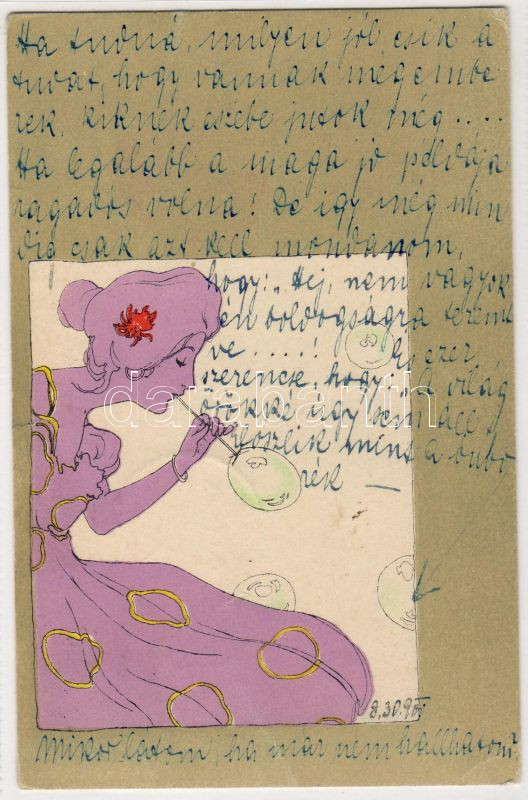 Ha tudná, milyen jól esik a
tudat, hogy vannak még embe
rek, kiknek eszébe jutok még....
Ha legalább a maga jó példája
ragadós volna! De így még min
dig csak azt kell mondanom,
hogy: "Hej, nem vagyok
én boldogságra teremt
ve.....!
szerencse, hogy a világ
örökké így sem áll s
oszlik mint a bubo
rék —
darabanth
8.30.900
Mikor látom, ha már nem hallhatom?